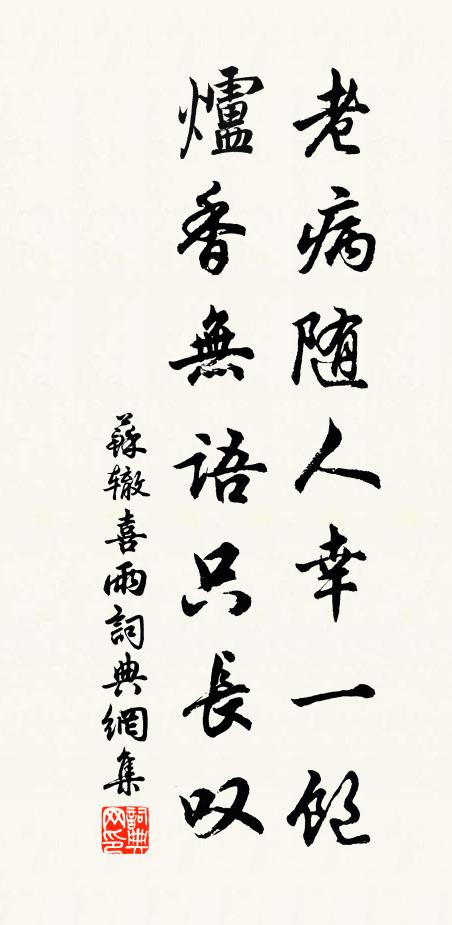 老病随人幸一飽
爐香無語只長叹
蘇辙喜雨詞典網集
詞典网印